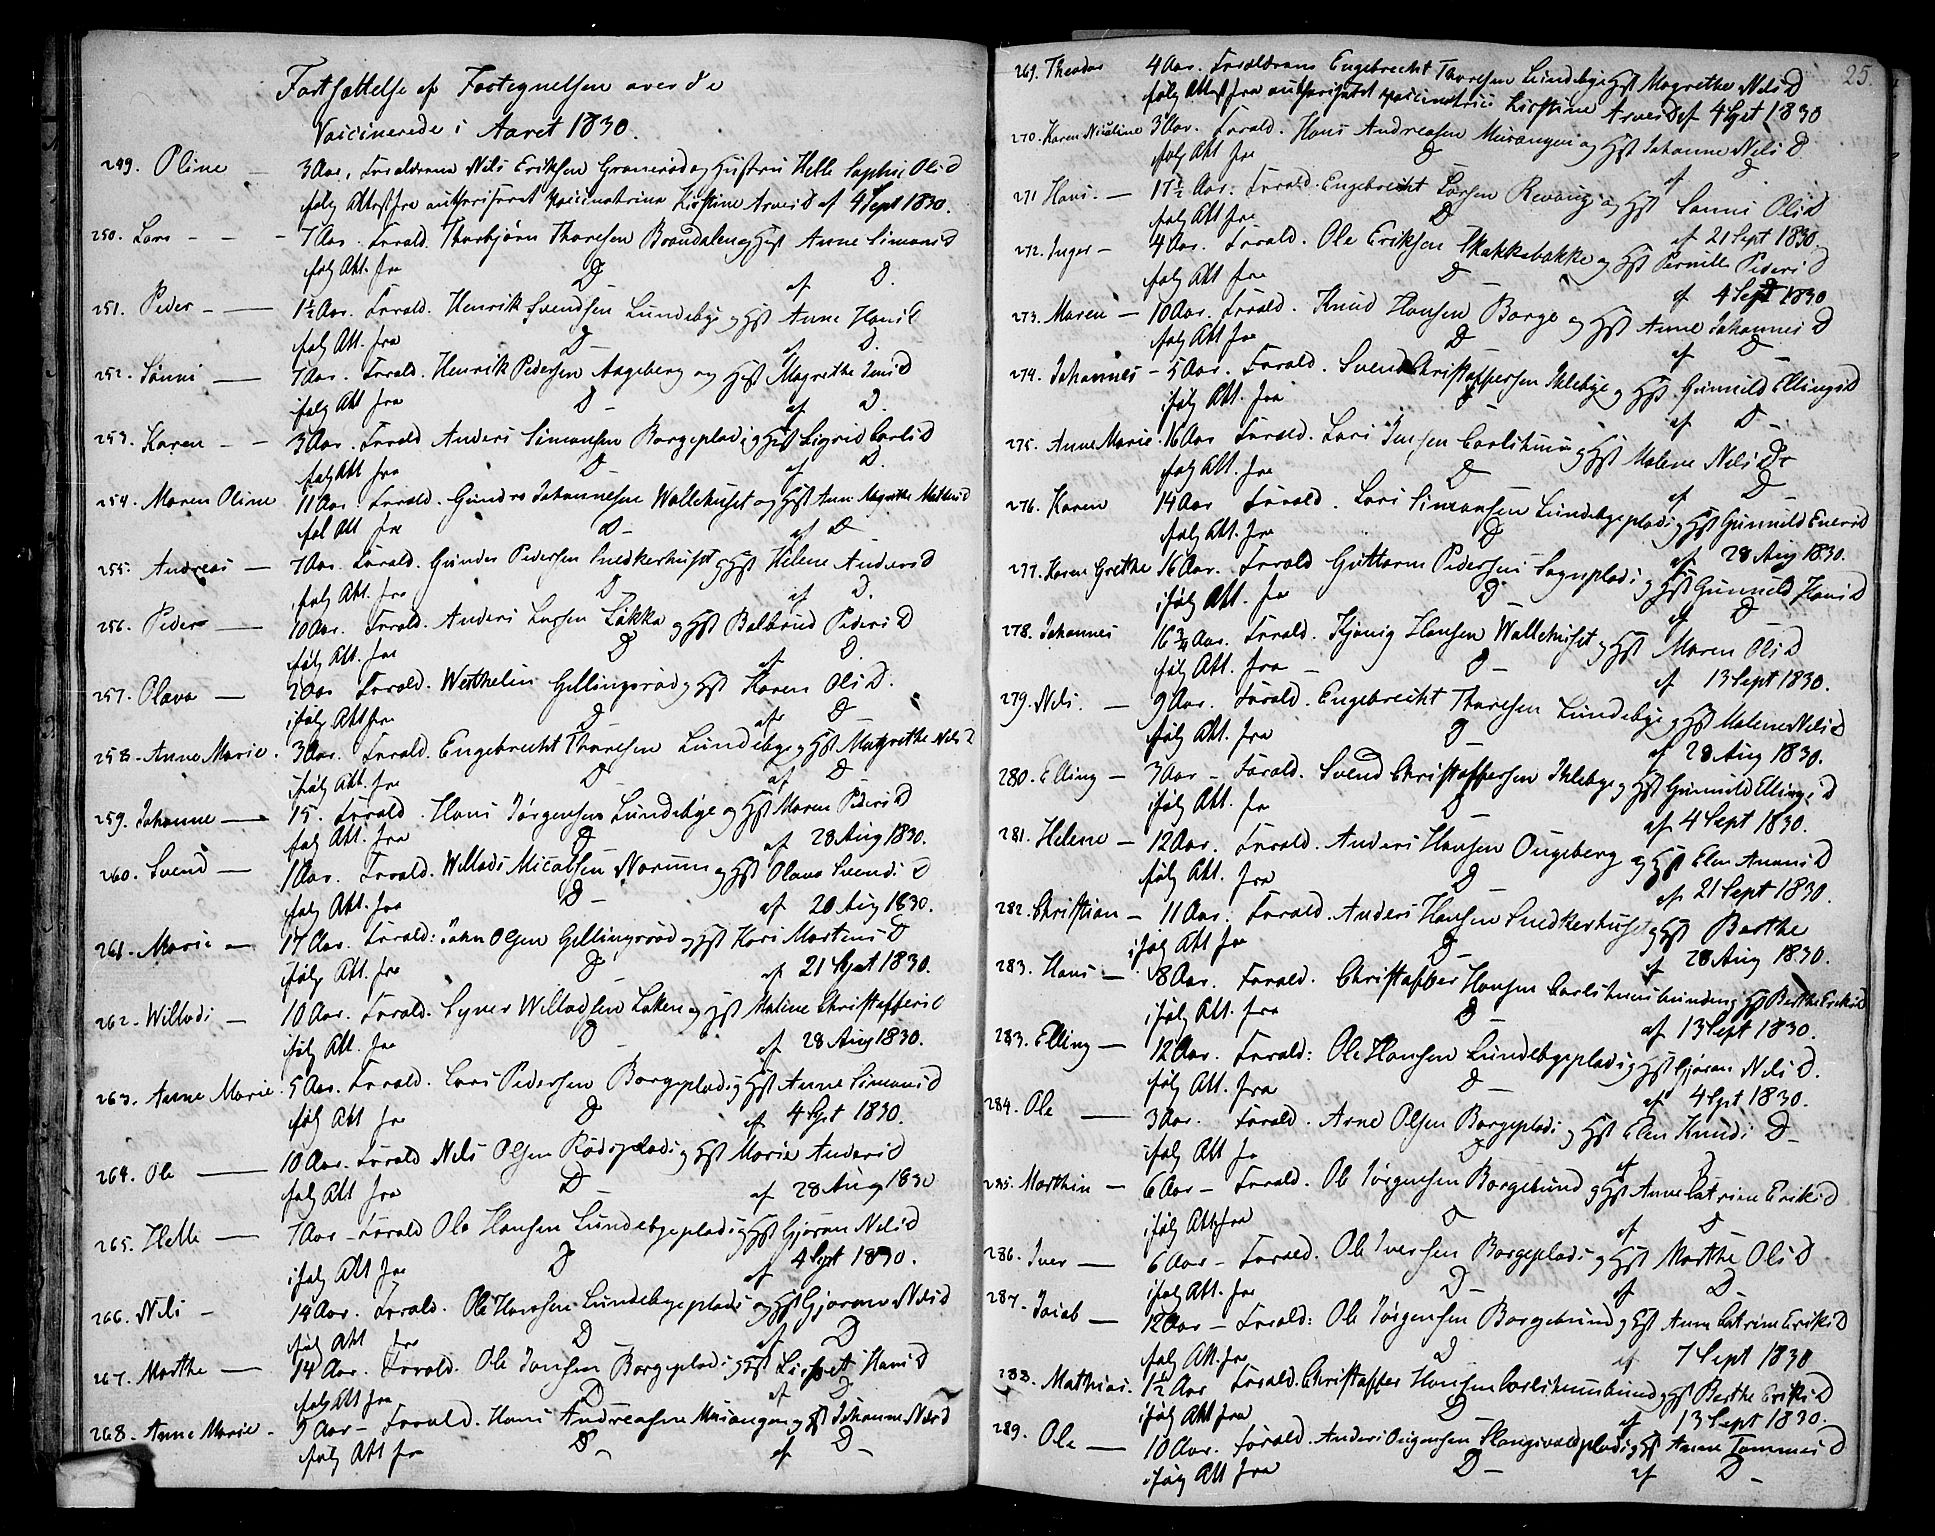 Fortsættelse af Fortegnelsen over de
Vaccinerede i Aaret 1830.
249. Oline — 3 Aar, Forældrene Nils Eriksen Granerød og Hustru Helle Sophie Olsd
følg Attest fra authoriseret Vaccinatrice Kirstine Arvesd af 4 Sept 1830.
250. Lars - - - 7 Aar. Foræld. Thorbjørn Thoresen Brandalen og Hst Anne Simonsd
følg Att. fra D af D.
251. Peder - — 1½ Aar. Foræld. Henrik Svendsen Lundebye og Hst Anne Hansd
følg Att. fra D - af D.
252. Sønni — 7 Aar. Foræld. Henrik Pedersen Aageberg og Hst Magrethe Jensd
ifølg Att fra D - af D.
253. Karen - - 3 Aar. Foræld Anders Simonsen Borgeplads og Hst Sigrid Carlsd
følg Att fra D - af D.
254. Maren Oline 11 Aar. Foræld. Gunder Johannesen Wallehuset og Hst Anne Magrethe Mathisd
føl Att fra D - af D -
255. Andreas — 7 Aar. Foræld. Gunder Pedersen Snedkerhuset og Hst Helene Andersd
ifølg Att. fra D - af D.
256. Peder — 10 Aar. Foræld. Anders Larsen Løkka og Hst Balbrud Pedersd
følg Att. fra D af D.
257. Olava — 2 Aar Foræld. Westhelin Gellingsrød og Hst Karen Olsd.
ifølg Att fra D af D -
258. Anne Marie. 3 Aar. Foræld. Engebrecht Thoresen Lundebye og Hst Magrethe Nilsd
ifølg Att. fra D - af D -
259. Johanne — 15. Foræld. Hans Jørgensen Lundebye og Hst Maren Pedersd
følg Att. fra D af 28 Aug 1830.
260. Svend — 1 Aar. Foræld. Willads Micalsen Norum og Hst Olava Svendsd
følg Att. fra D - af 20 Aug 1830.
261. Marie — 17 Aar. Foræld: John Olsen Gellingsrød og Hst Kari Martensd
ifølg Att. fra D - af 21 Sept 1830.
262. Willads — 10 Aar. Foræld. Syver Willadsen Løken og Hst Maline Christoffersd
ifølg Att. fra D - af 28 Aug 1830.
263. Anne Marie. 5 Aar. Foræld. Lars Pedersen Borgeplads og Hst Anne Simonsd
følg Att fra D af 4 Sept 1830.
264. Ole — 10 Aar. Foræld Nils Olsen Rødsplads og Hst Maria Andersd
følg Att fra D - af 28 Aug 1830
265. Helle — 7 Aar - Foræld Ole Hansen Lundebyeplads og Hst Gjøran Nilsd
ifølg Att fra D af 4 Sept 1830.
266. Nils - 14 Aar. Foræld. Ole Hansen Lundebyeplads og Hst Gjøran Nilsd
følg Att fra D af D
267. Marthe — 14 Aar. Foræld. Ole Jonsen Borgeplads og Hst Lisbet Hansd
følg Att fra D af D
268. Anne Marie - 9 Aar - Foræld. Hans Andreasen Musangen og Hst Johanne Nilsd
følg Att fra D - af D -
25.
269. Theodor 4 Aar. Forældrene Engebrecht Thoresen Lundebye og Hst Magrethe Nilsd
følg Attest fra authoriseret Vaccinatrice Kirstine Arvesd af 4 Sept 1830
270. Karen Nicoline 3 Aar. Foræld. Hans Andreasen Musangen og Hst Johanne Nilsd
følg Att fra D af D
271 Hans. — 17½ Aar. Foræld. Engebrecht Larsen Revoug og Hst Sønni Olsd
følg Att fra D af 21 Sept 1830
272. Inger — 4 Aar. Foræld. Ole Eriksen Skakkebakke og Hst Pernille Pedersd
følg Att fra D - af 4 Sept 1830
273. Maren — 10 Aar. Foræld. Knud Hansen Borge og Hst Anne Johannesd
følg Att fra D af D -
274. Johannes — 5 Aar. Foræld. Svend Christoffersen Iklebye og Hst Gunnild Ellingsd
ifølg Att. fra D af D -
275. Anne Marie. 16 Aar Foræld. Lars Jensen Carlshuus og Hst Malene Nilsd
følg Att. fra D af D -
276. Karen 14 Aar Foræld. Lars Simonsen Lundebyeplads og Hst Gunnild Enersd
følg Att. fra D af 28 Aug 1830.
277. Karen Grethe 16 Aar. Foræld Guttorm Pedersen Sogneplads og Hst Gunnild Hansd
ifølg Att. fra D - af D
278. Johannes 16¾ Aar. Foræld. Kjønig Hansen Wallehuset og Hst Maren Olsd
følg Att. fra - D - af 13 Sept 1830.
279. Nils. — 9 Aar. Foræld. Engebrecht Thoresen Lundebye og Hst Malene Nilsd
følg Att. fra D - af 28 Aug 1830.
280. Elling — 3 Aar - Foræld. Svend Christoffersen Iklebye og Hst Gunnild Ellingsd
ifølg Att. fra D - af 4 Sept 1830.
281. Helene — 12 Aar. Foræld. Anders Hansen Ougeberg og Hst Elen Amundsd
følg Att. fra D - af 21 Sept 1830.
282. Christian — 11 Aar. Foræld. Anders Hansen Snedkerhuset og Hst Berthe
ifølg Att fra D - af 28 Aug 1830.
283. Hans — 8 Aar. Foræld. Christoffer Hansen Carlshuusbunden og Hst Berthe Eriksd
ifølg Att. fra D - af 13 Sept 1830.
283. Elling — 12 Aar. Foræld: Ole Hansen Lundebyeplads og Hst Gjøran Nilsd.
følg Att. fra D - af 4 Sept 1830.
284. Ole — 3 Aar. Foræld. Arne Olsen Borgeplads og Hst Elen Knudsd -
ifølg Att fra D af D
285. Marthin — 6 Aar - Foræld. Ole Jørgensen Borgebund og Hst Anne Catrine Eriksd
ifølg Att fra D af D -
286. Iver — 6 Aar - Foræld. Ole Iversen Borgeplads og Hst Marthe Olsd
ifølg Att. fra D - af D -
287. Jacob — 12 Aar - Foræld: Ole Jørgensen Borgebund og Hst Anne Catrine Eriksd
følg Att. fra D af 7 Sept 1830
288. Mathias. 1½ Aar Foræld. Christoffer Hansen Carlshuusbund og Hst Berthe Eriksd
ifølg Att fra D - af 13 Sept 1830.
289. Ole — 10 Aar. Foræld. Anders Ougensen Slangsvoldplads og Hst Anne Tommesd
ifølg Att fra D - af D -